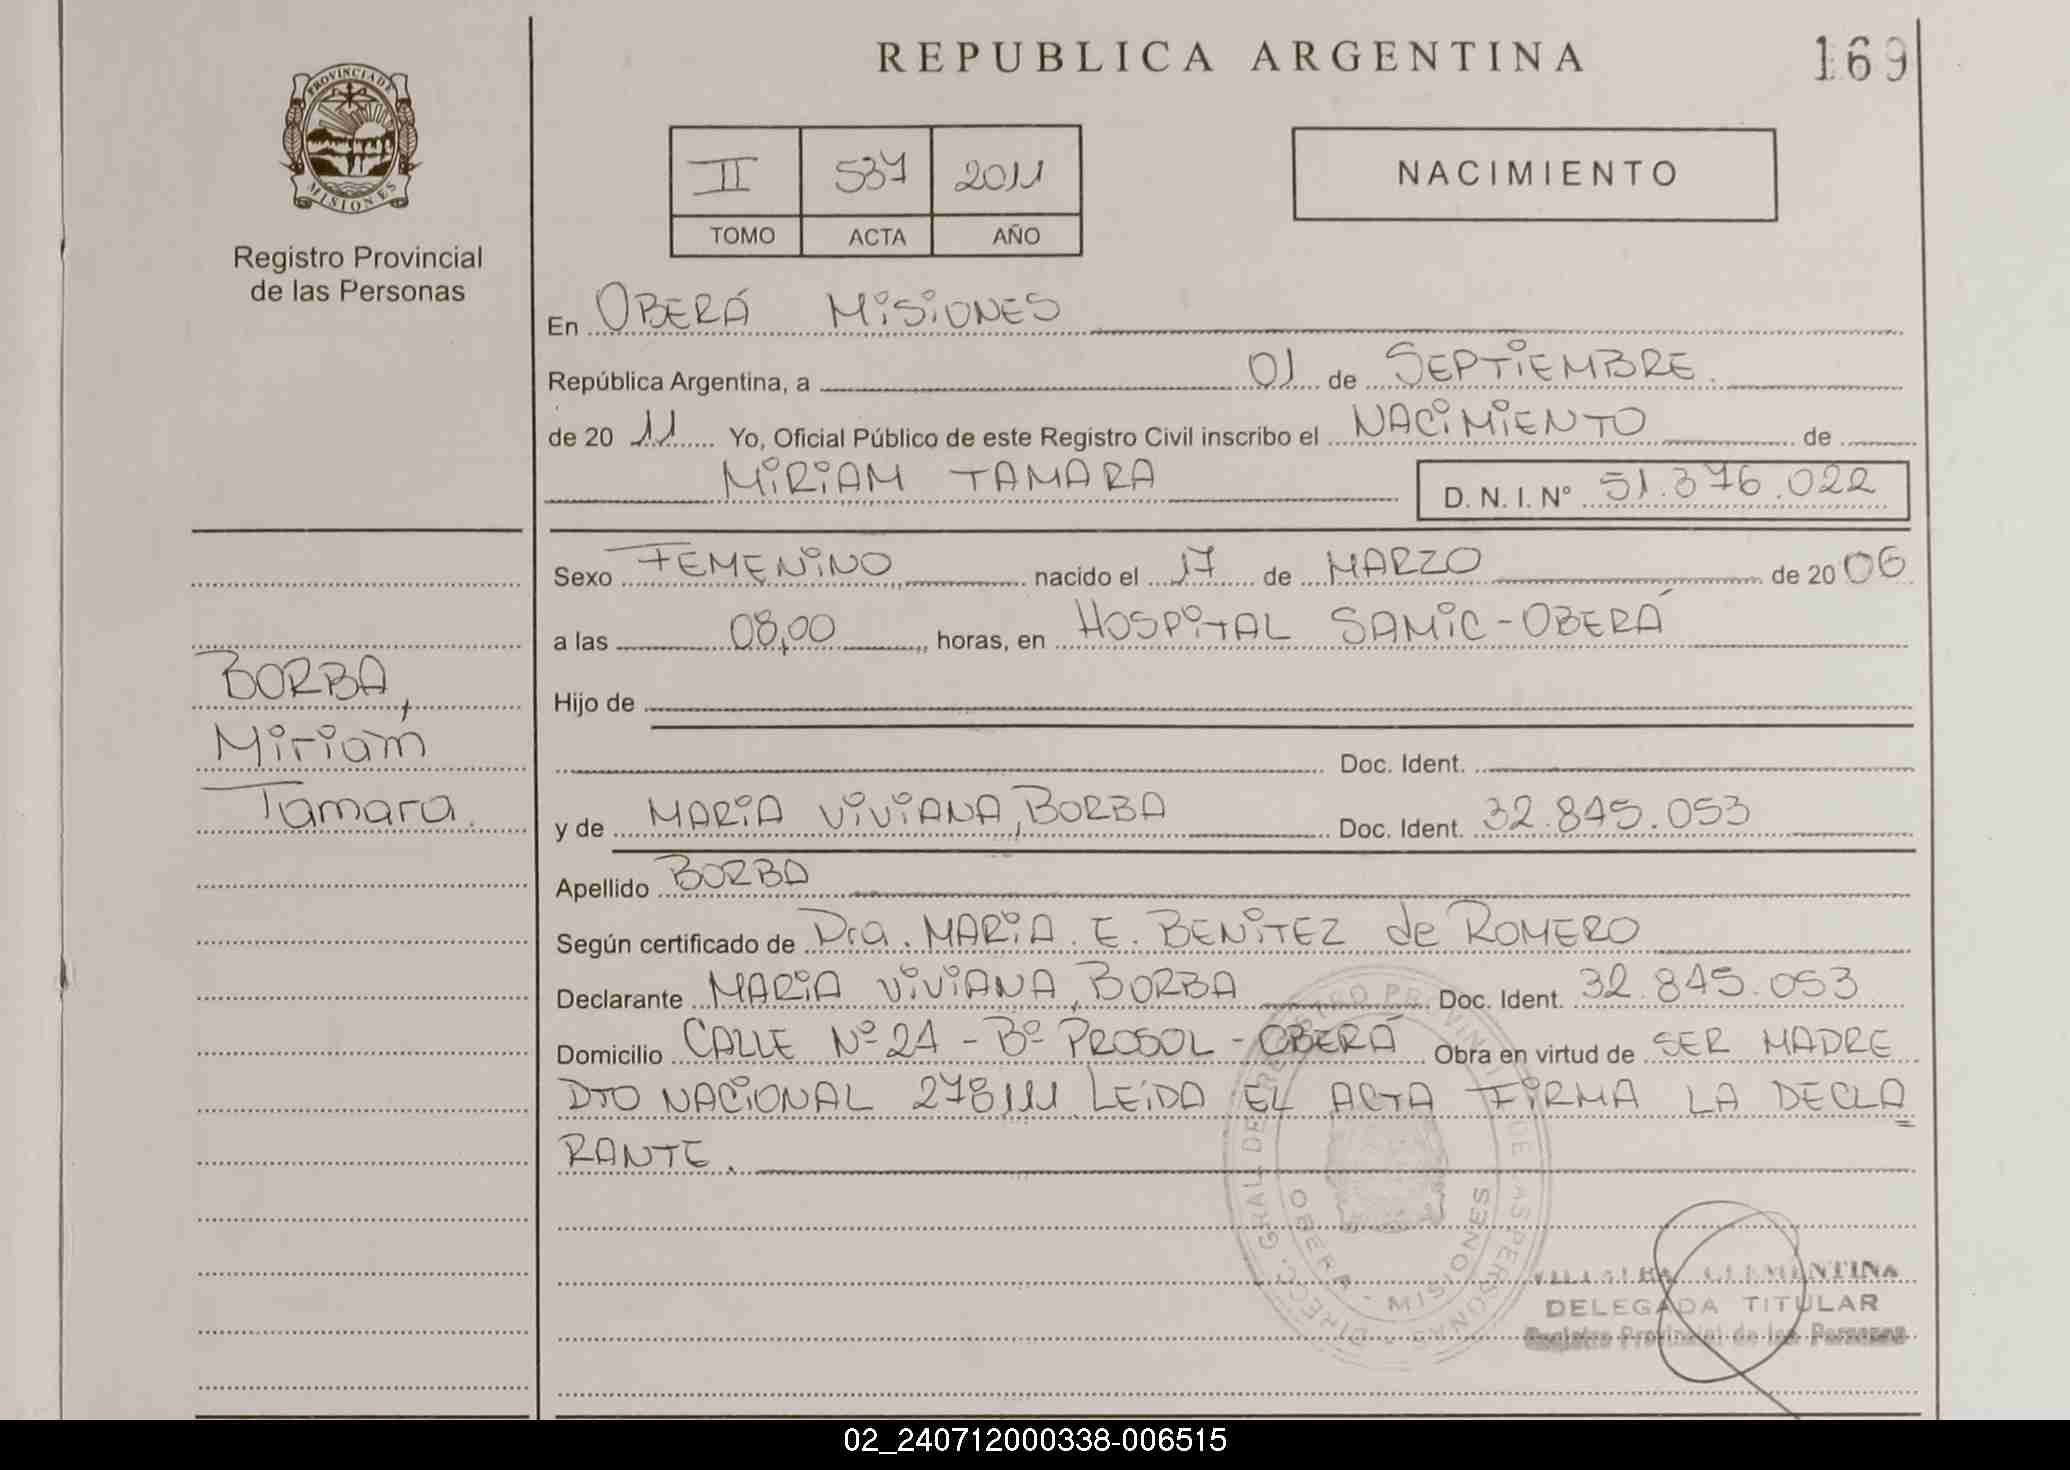 REPUBLICA ARGENTINA
169
PROVINCIA DE MISIONES
Registro Provincial
de las Personas
II 537 2011
TOMO ACTA AÑO
NACIMIENTO
En OBERÁ MISIONES
República Argentina, a 01 de SEPTIEMBRE.
de 20 11 Yo, Oficial Público de este Registro Civil inscribo el NACIMIENTO de
MIRIAM TAMARA D. N. I. Nº 51.376.022
Sexo FEMENINO nacido el 17 de MARZO de 20 06
a las 08,00 horas, en HOSPITAL SAMIC - OBERÁ
BORBA,
Miriam
Tamara.
Hijo de
Doc. Ident.
y de MARIA VIVIANA, BORBA Doc. Ident. 32.845.053
Apellido BORBA
Según certificado de Dra. MARIA. E. BENITEZ de ROMERO
Declarante MARIA VIVIANA, BORBA Doc. Ident. 32.845.053
Domicilio CALLE Nº 24 - Bº PROSOL - OBERÁ Obra en virtud de SER MADRE
DTO NACIONAL 278/11 LEIDA EL ACTA FIRMA LA DECLA
RANTE.
DIRECC. GRAL. DE REGISTRO PROVINCIAL DE LAS PERSONAS
OBERA - MISIONES
VILLALBA CLEMENTINA
DELEGADA TITULAR
Registro Provincial de las Personas
02_240712000338-006515